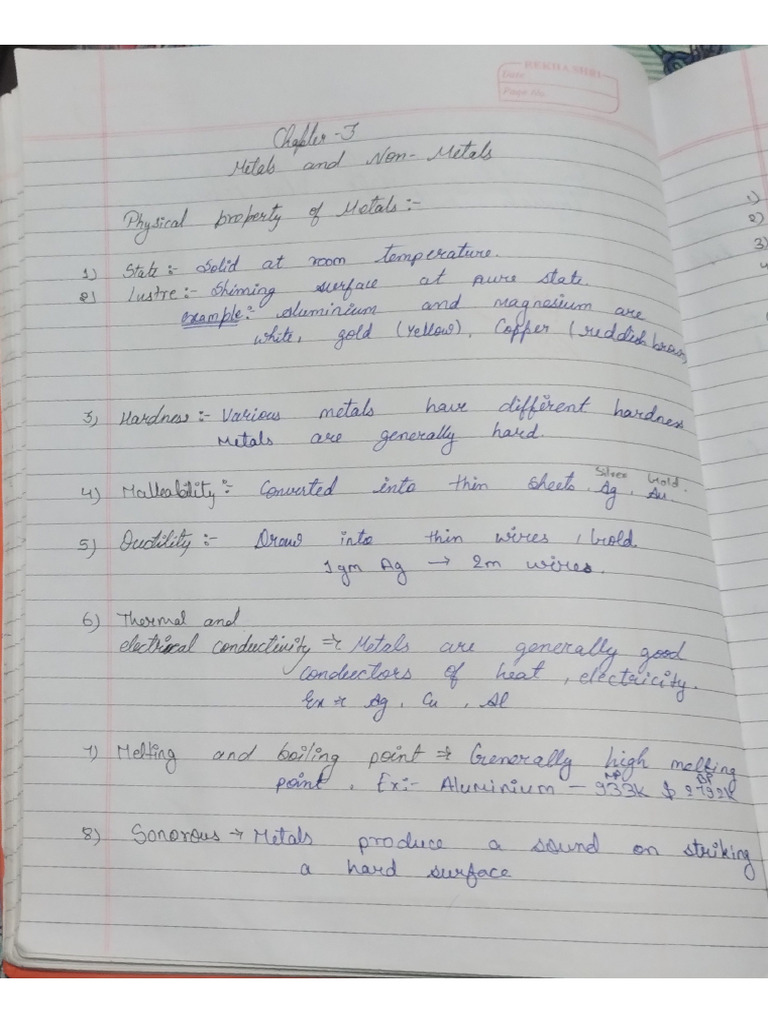 REKHA SHRI
Date
Page No.
Chapter-3
Metals and Non-Metals
Physical property of Metals:-
1) State:- Solid at room temperature.
2) Lustre:- Shining surface at pure state.
example:- Aluminium and magnesium are
white, gold (Yellow), Copper (reddish brown)
3) Hardness:- Various metals have different hardness
Metals are generally hard.
Silver Gold
4) Malleability:- Converted into thin sheets, Ag, Au.
5) Ductility:- Draw into thin wires, Gold
1gm Ag → 2m wires.
6) Thermal and
electrical conductivity ⇒ Metals are generally good
conductors of heat, electricity.
Ex:- Ag, Cu, Al
7) Melting and boiling point ⇒ Generally high melting
MP BP
point. Ex:- Aluminium - 933K $ 2792K
8) Sonorous → Metals produce a sound on striking
a hard surface
1)
2)
3)
4